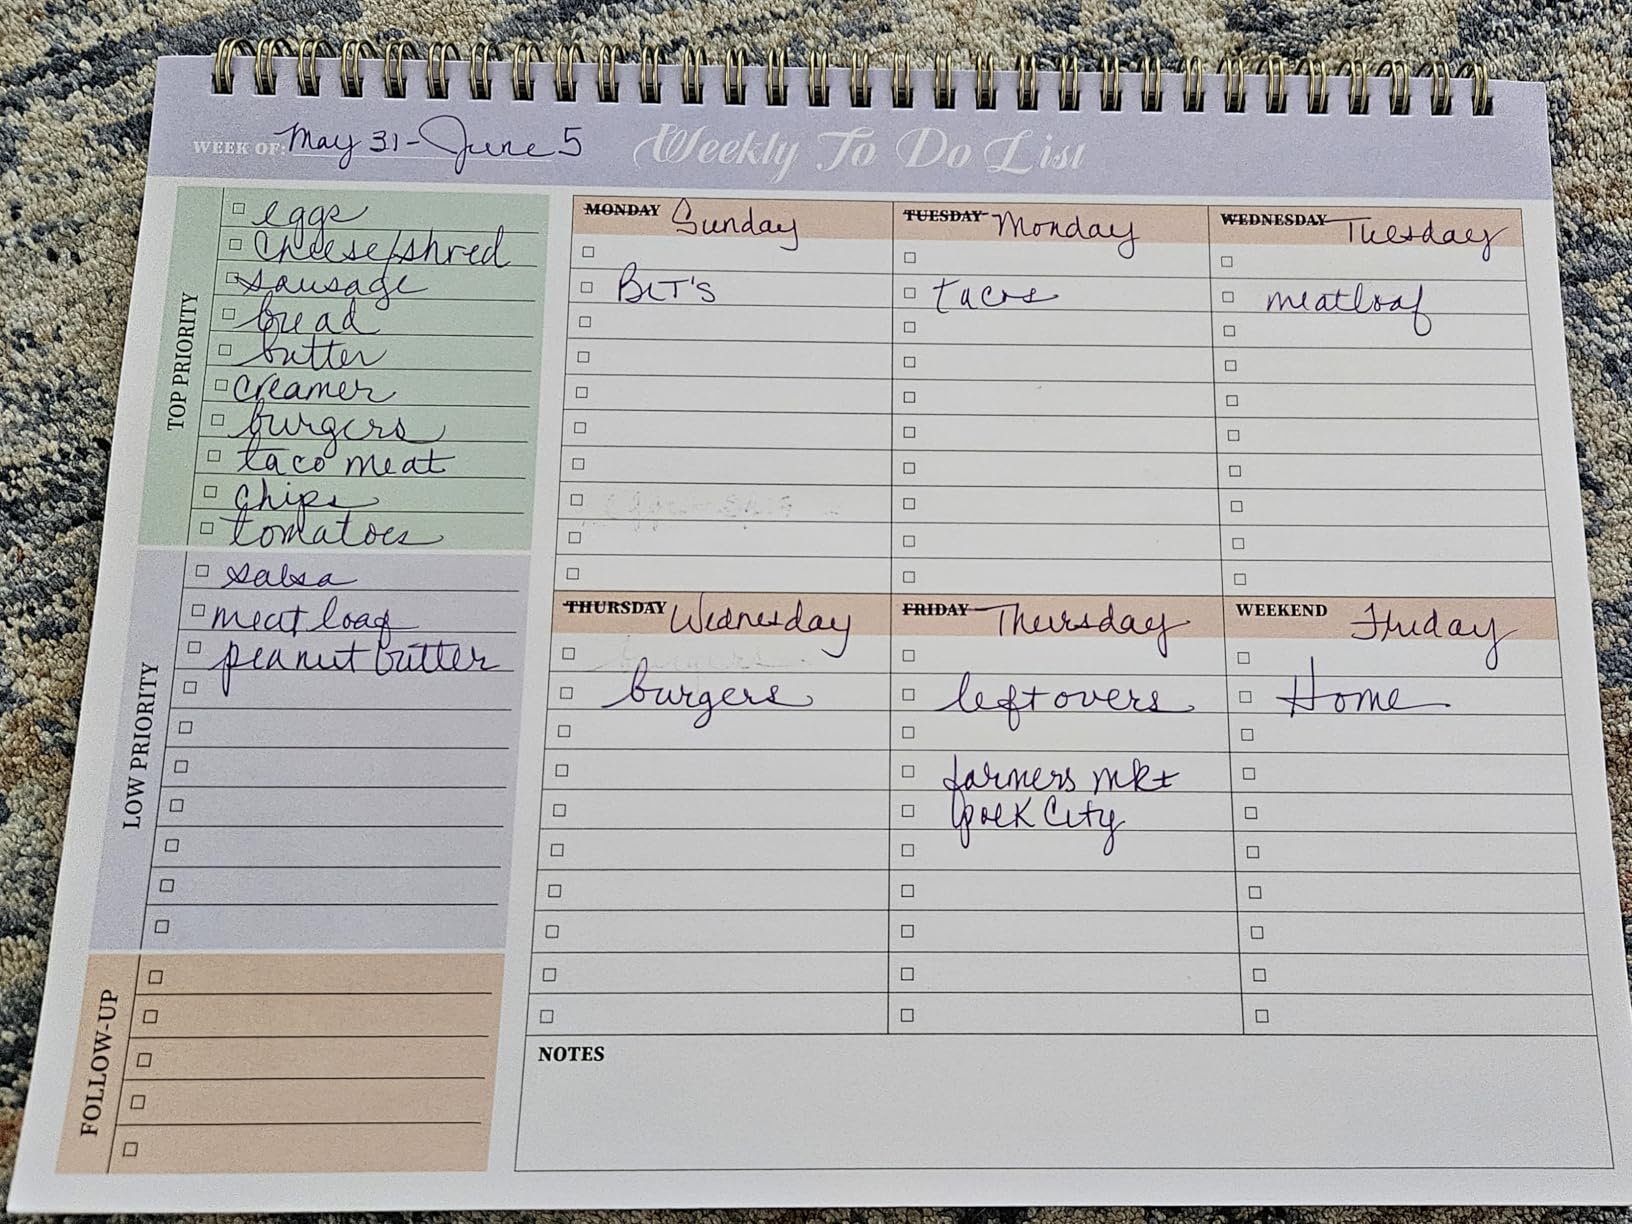 WEEK OF: May 31 - June 5
Weekly To Do List
TOP PRIORITY
eggs
cheese/shred
sausage
bread
butter
creamer
burgers
taco meat
chips
tomatoes
LOW PRIORITY
salsa
meat loaf
peanut butter
FOLLOW-UP
MONDAY Sunday
BLT'S
TUESDAY Monday
tacos
WEDNESDAY Tuesday
meatloaf
THURSDAY Wednesday
burgers
FRIDAY Thursday
leftovers
farmers mkt
Polk City
WEEKEND Friday
Home
NOTES